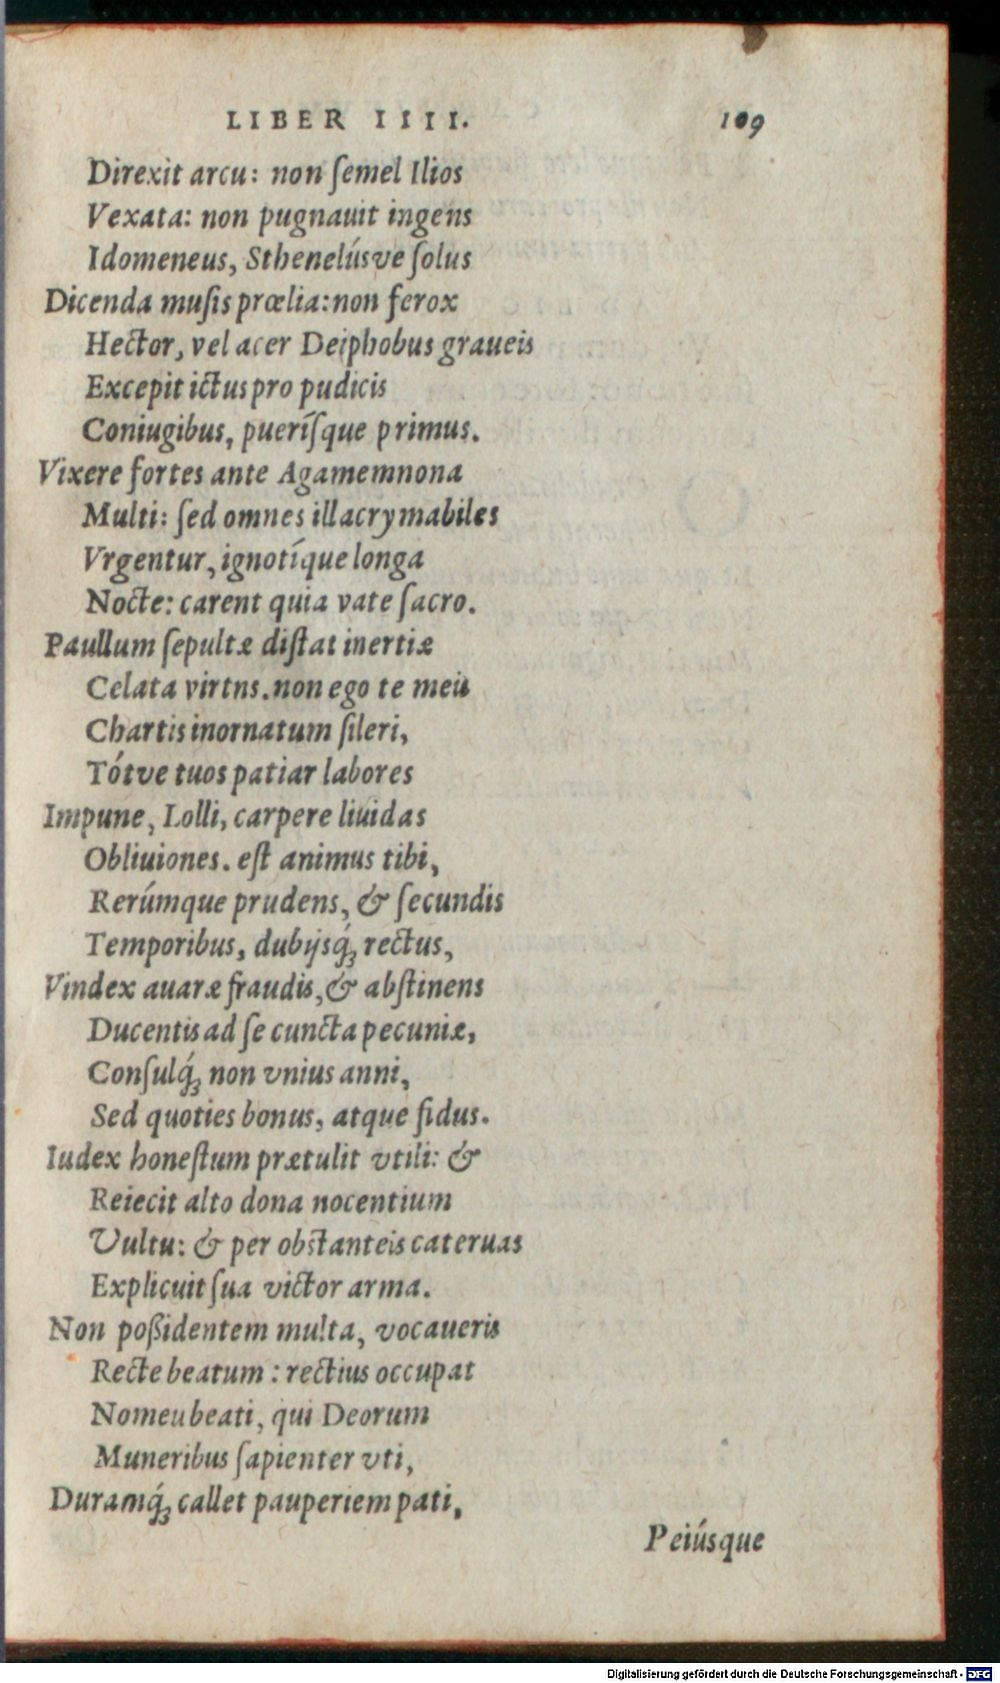 LIBER IIII. 109
Direxit arcu: non ſemel Ilios
Vexata: non pugnauit ingens
Idomeneus, Sthenelúsve ſolus
Dicenda muſis prœlia: non ferox
Hector, vel acer Deiphobus graueis
Excepit ictus pro pudicis
Coniugibus, pueríſque primus.
Vixere fortes ante Agamemnona
Multi: ſed omnes illacrymabiles
Vrgentur, ignotíque longa
Nocte: carent quia vate ſacro.
Paullum ſepultæ diſtat inertiæ
Celata virtns. non ego te meis
Chartis inornatum ſileri,
Tótve tuos patiar labores
Impune, Lolli, carpere liuidas
Obliuiones. eſt animus tibi,
Rerúmque prudens, & ſecundis
Temporibus, dubijsq́; rectus,
Vindex auaræ fraudis, & abſtinens
Ducentis ad ſe cuncta pecuniæ,
Conſulq́; non vnius anni,
Sed quoties bonus, atque fidus.
Iudex honeſtum prætulit vtili: &
Reiecit alto dona nocentium
Vultu: & per obſtanteis cateruas
Explicuit ſua victor arma.
Non poßidentem multa, vocaueris
Recte beatum: rectius occupat
Nomeu beati, qui Deorum
Muneribus ſapienter vti,
Duramq́; callet pauperiem pati,
Peiúsque
Digitalisierung gefördert durch die Deutsche Forschungsgemeinschaft - DFG